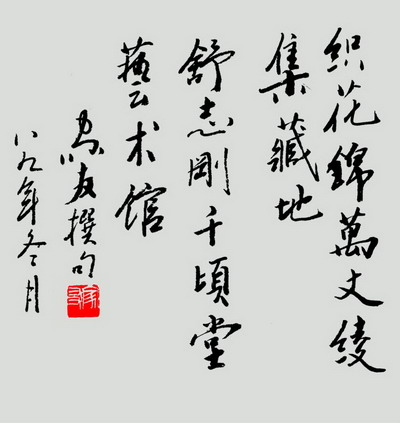 织花錦萬丈綾
集藏地
舒志剛千頃堂
藝术馆
友撰句
八九年冬月